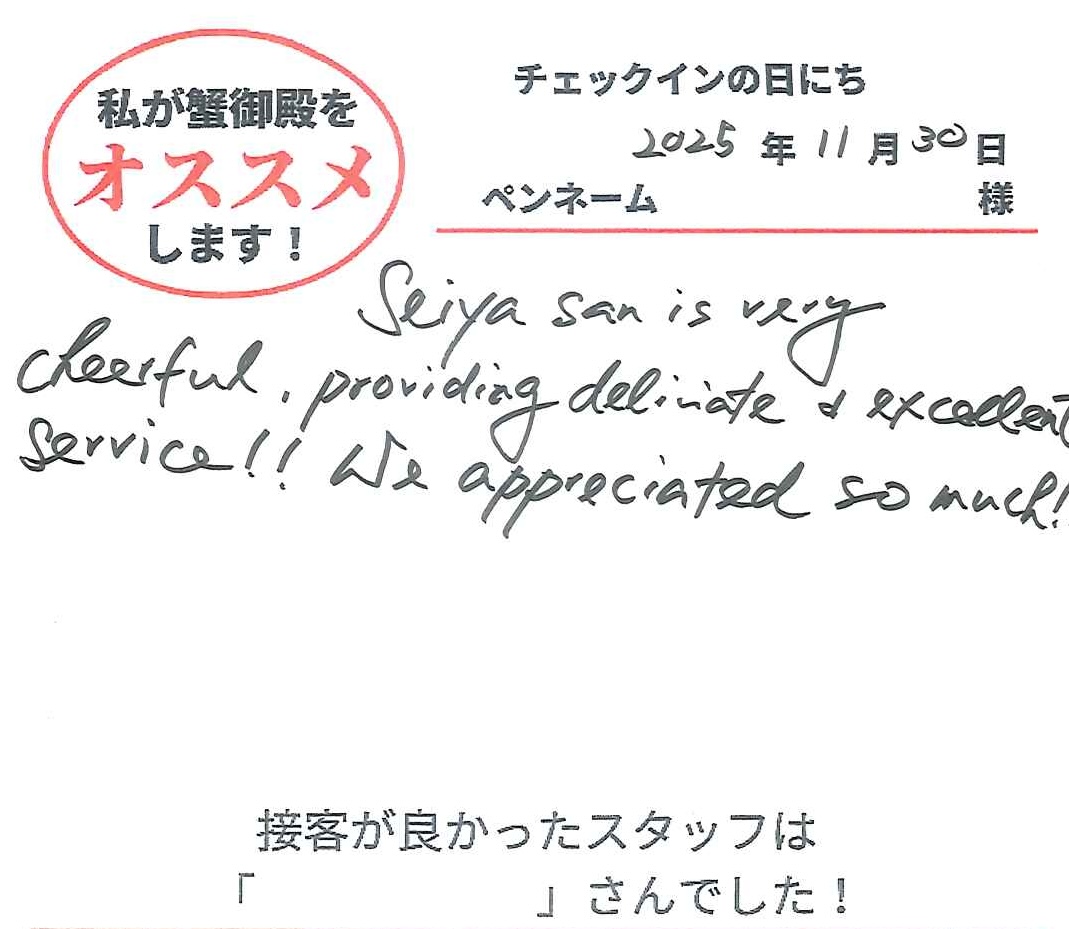 私が蟹御殿を
オススメ
します！
チェックインの日にち
2025 年 11 月 30 日
ペンネーム 様
Seiya san is very
cheerful, providing deliniate & excellent
service!! We appreciated so much!!
接客が良かったスタッフは
「 」さんでした！